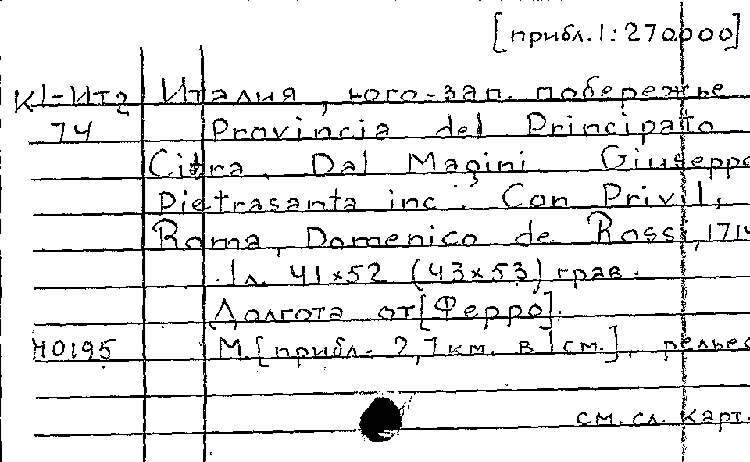 [прибл.1:270000]
К1-Ит2 Италия, юго-зап. побережье
74 Provincia del Principato
Citra. Dal Magini. Giuseppe
Pietrasanta inc. Con Privil,
Roma, Domenico de Rossi, 1714
1л. 41×52 (43×53) грав.
Долгота от [Ферро].
М.[прибл. 2,7км. в 1см.], рельеф
см. сл. карт.